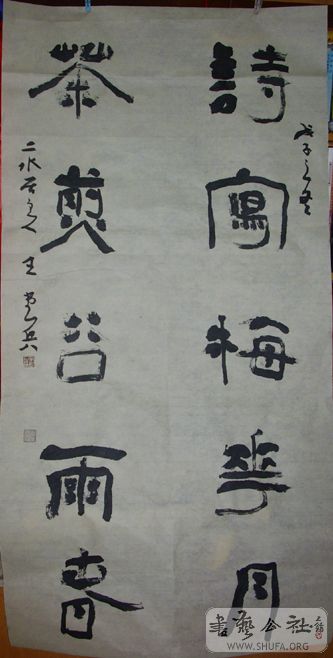 戊子之冬
詩寫梅花月
茶煎谷雨春
二水居人 王
書藝公社
WWW.SHUFA.ORG